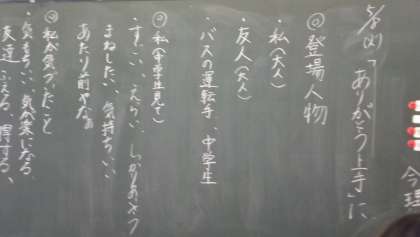 5/8(火)「ありがとう上手」に、
◎登場人物
・私(大人)
・友人(大人)
・バスの運転手、中学生
②私(中学生見て)
・すごい、えらい、しっかりあいさつ
まねしたい、気持ちいい
あたり前やなぁ
③私が気づいたこと
・気もちいい、気が楽になる
友達ふえる、得する、